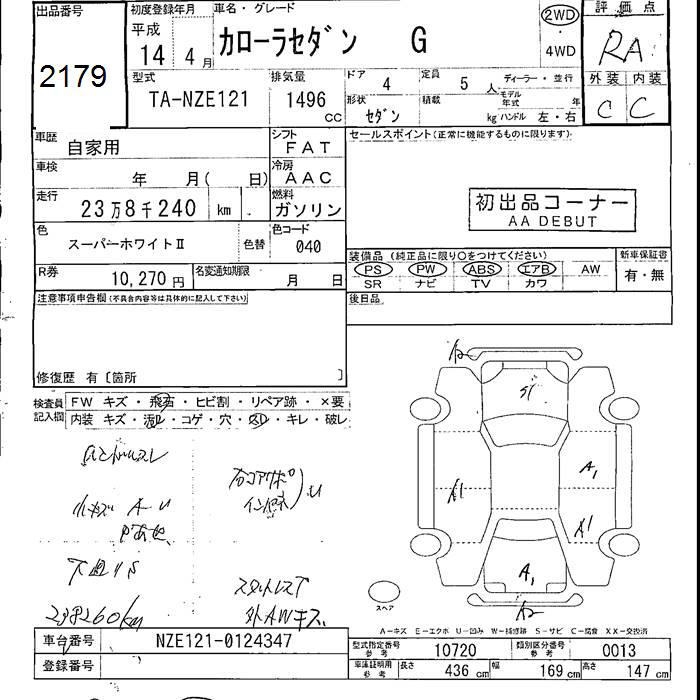 出品番号
2179
初度登録年月
平成
14 4月
車名・グレード
カローラセダン G
2WD
・
4WD
評価点
RA
外装 内装
C C
型式
TA-NZE121
排気量
1496
CC
ドア 4
定員 5人
ディーラー・並行
モデル年式 年
形状 セダン
積載 kg
ハンドル 左・右
車歴
自家用
シフト
FAT
車検
年 月( 日)
冷房
AAC
走行
23万8千240 km
燃料
ガソリン
色
スーパーホワイトⅡ
色替
色コード
040
R券
10,270円
名変通知期限
月 日
セールスポイント(正常に機能するものに限ります)
初出品コーナー
AA DEBUT
装備品(純正品に限り○をつけてください)
PS PW ABS エアB AW
SR ナビ TV カワ
新車保証書
有・無
後日品
注意事項申告欄(不具合内容等は具体的に記入して下さい)
修復歴 有〔箇所 〕
検査員
記入欄
FW キズ・飛石・ヒビ割・リペア跡・×要
内装 キズ・汚レ・コゲ・穴・スレ・キレ・破レ
小キズ A U
下廻りS
238260km
外AWキズ
S1
A1
A1
A1
A1
A2
A2
スペア
A-キズ E-エクボ U-凹み W-補修跡 S-サビ C-腐食 XX-交換済
車台番号
NZE121-0124347
登録番号
型式指定番号
参考
10720
類別区分番号
参考
0013
車庫証明用
参考
長さ 436 cm
幅 169 cm
高さ 147 cm